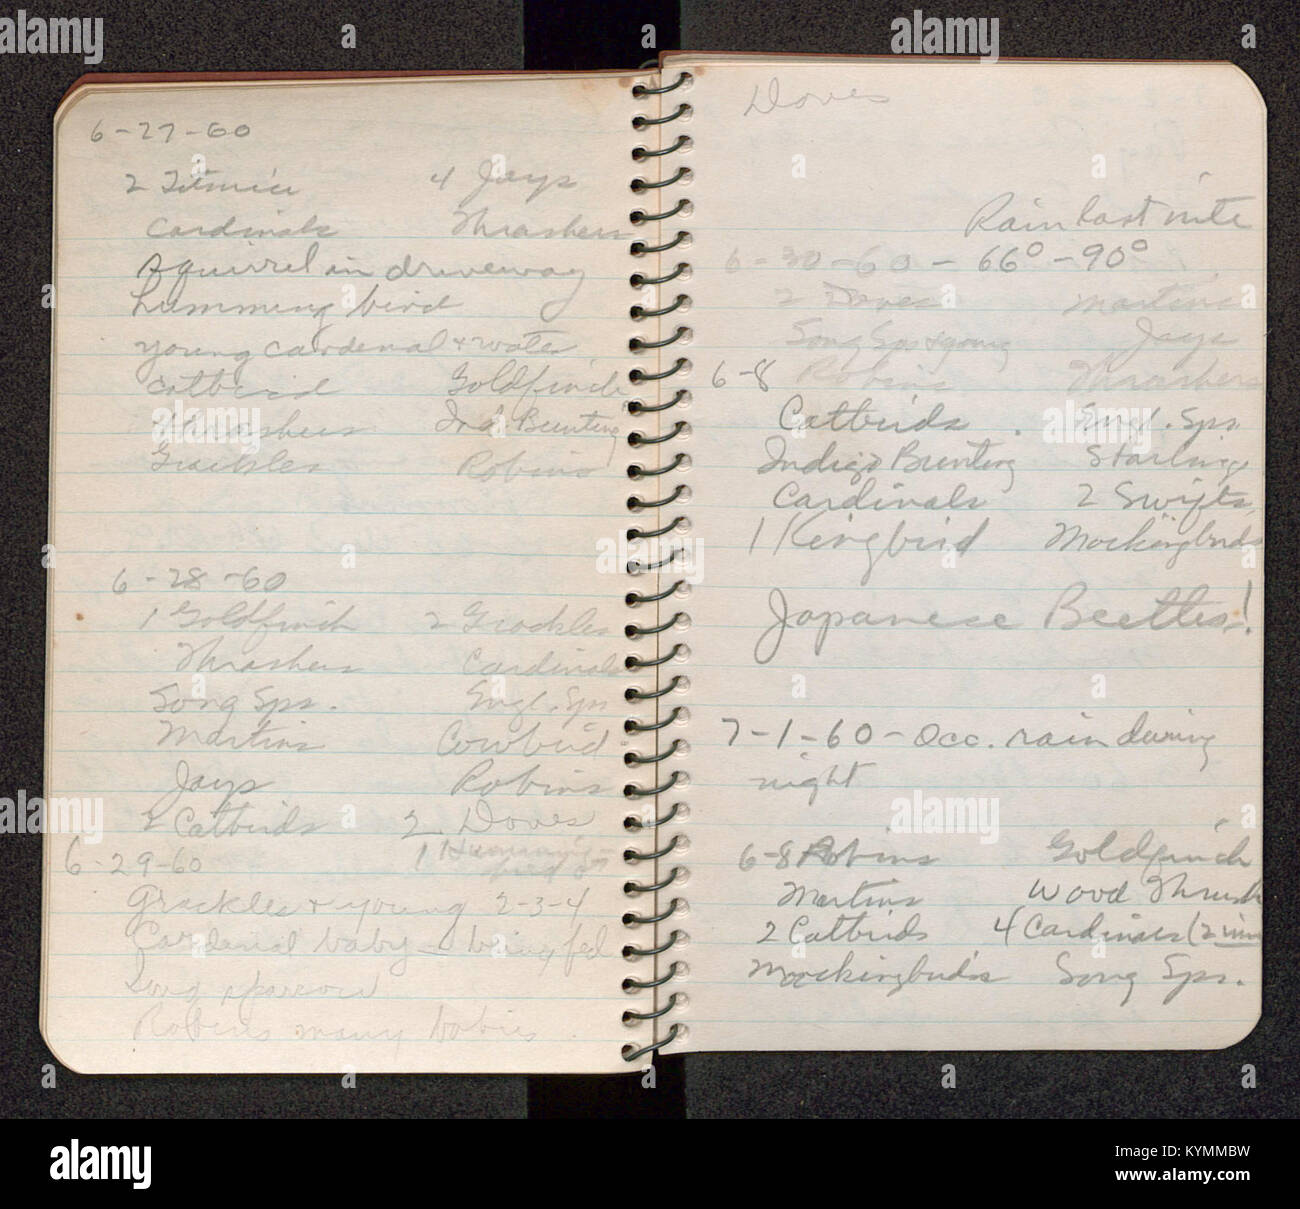 6-27-60
2 Titmice 4 Jays
Cardinals Thrashers
Squirrel in driveway
humming bird
young cardenal + water
catbird Goldfinch
Thrashers Ind. Bunting
Grackles Robins
6-28-60
1 Goldfinch 2 Grackles
Thrashers Cardinals
Song Sps. Engl. Sps
Martins Cowbird
Jays Robins
2 Catbirds 2 Doves
6-29-60 1 Humming-
bird
Grackles + young 2-3-4
Cardenal baby - being fed
Song sparrow
Robins many babies
Doves
Rain last nite
6-30-60 - 66° - 90°
2 Doves Martins
Song Sps + young Jays
6-8 Robins Thrashers
Catbirds Engl. Sps.
Indigo Bunting Starlings
Cardinals 2 Swifts
1 Kingbird Mockingbirds
Japanese Beetles!
7-1-60 - Occ. rain during
night
6-8 Robins Goldfinch
Martins Wood Thrush
2 Catbirds 4 Cardinals (2
Mockingbirds Song Sps.
alamy
Image ID: KYMMBW
www.alamy.com